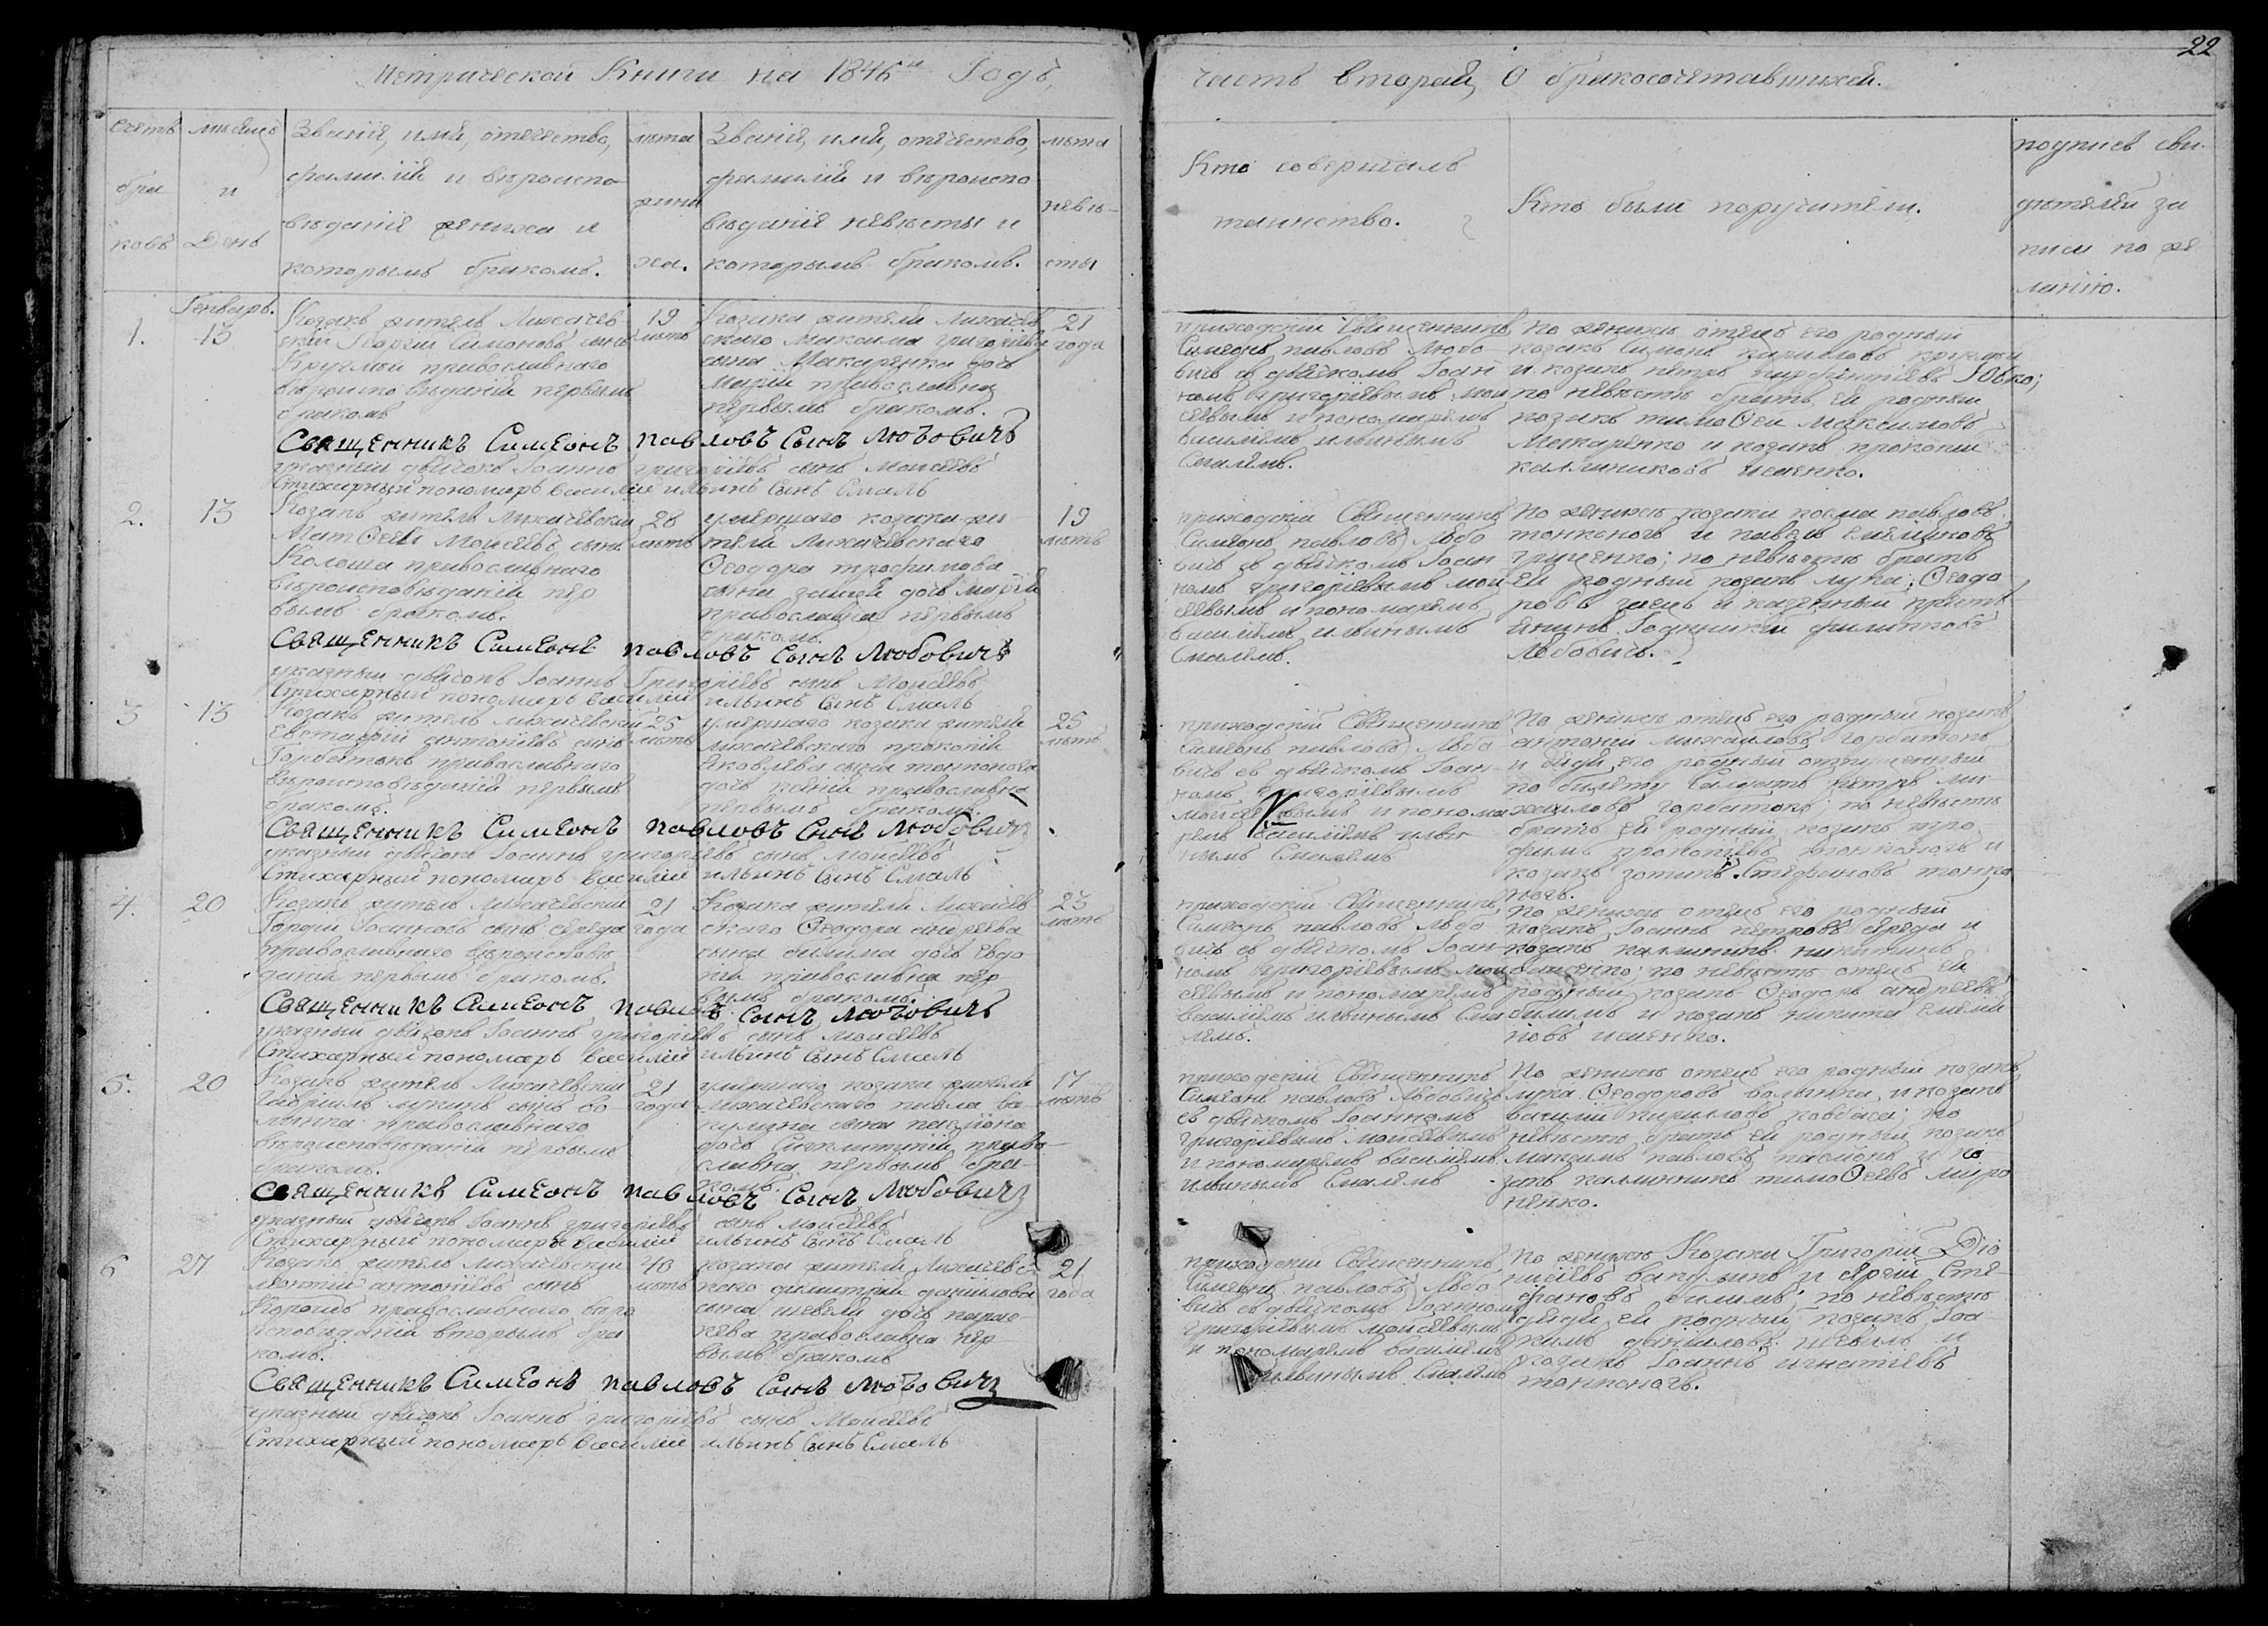 22
Метрической Книги на 1846й Годъ,
часть вторая, О бракосочетавшихся.
Счетъ
бра
ковъ
месяцъ
и
День
Званіе, имя, отечество,
фамилія и вѣроиспо
вѣданіе жениха и
которымъ бракомъ.
лѣта
жени
ха.
Званіе, имя, отечество,
фамилія и вѣроиспо
вѣданіе невѣсты и
которымъ бракомъ.
лѣта
невѣ-
сты
Кто совершалъ
таинство.
Кто были поручители.
подписъ сви-
дѣтелей за
писи по же
ланію.
Генварь.
1.
13
Козакъ житель Лихачев
скій Георгій Симоновъ сынъ
Круглый православнаго
вѣроисповѣданія первымъ
бракомъ
19
лѣтъ
Козака жителя Лихачев
скаго Максима григорьева
сына Макаренка дочь
Марія православна
первымъ бракомъ.
21
года
приходскій Священникъ
Симеонъ павловъ Любо
вичъ съ дьячкомъ Іоан
номъ Григоріевымъ Мои
сеевымъ и пономаремъ
василіемъ ильинымъ
Смалемъ.
по женихѣ отецъ его родный
козакъ Симонъ кирилловъ круглый
и козакъ петръ Говко;
по невѣстѣ братъ ей родный
козакъ тимоѳей Максимовъ
Макаренко и козакъ прокопій
каллиниковъ исаенко.
Священникъ Симеонъ павловъ Сынъ Любовичъ
указный дьячокъ Іоаннъ григоріевъ сынъ Моисеевъ
Стихарный пономарь василій ильинъ Сынъ Смаль
2.
13
Козакъ житель Лихачевскій
Матѳей Моисеевъ сынъ
Колоша православнаго
вѣроисповѣданія пер
вымъ бракомъ.
28
лѣтъ
умершаго козака жи
теля Лихачевскаго
Ѳеодора трофимова
сына заяця дочь Марія
православна первымъ
бракомъ.
19
лѣтъ
приходскій Священникъ
Симеонъ павловъ Любо
вичъ съ дьячкомъ Іоан
номъ григоріевымъ Мои
сеевымъ и пономаремъ
василіемъ ильинымъ
Смалемъ.
По женихѣ козаки козма павловъ
тонконогъ и павелъ
гриценко; по невѣстѣ братъ
ей родный козакъ лука Ѳеодо
ровъ заецъ и казенный кресть
янинъ Іоанникій филипповъ
Любовичъ.
Священникъ Симеонъ павловъ Сынъ Любовичъ
указный дьячокъ Іоаннъ Григоріевъ сынъ Моисеевъ
Стихарный пономарь василій ильинъ Сынъ Смаль
3
13
Козакъ житель лихачевскій
Евстафій антоніевъ сынъ
Горбатокъ православнаго
вѣроисповѣданія первымъ
бракомъ.
25
лѣтъ
умершаго козака жителя
лихачевскаго прокопія
Яковлева сына тонконога
дочь ксенія православна
первымъ бракомъ
25
лѣтъ
приходскій Священникъ
Симеонъ павловъ Любо
вичъ съ дьячкомъ Іоан
номъ Григоріевымъ
моисеевымъ и понома
ремъ василіемъ ильи
нымъ Смалемъ
По женихѣ отецъ его родный козакъ
антоній михайловъ горбатокъ
и дядя его родный отпущенный
по билету Солдатъ петръ ми
хайловъ горбатокъ; по невѣстѣ
братъ ей родный козакъ тро
фимъ прокопіевъ тонконогъ и
козакъ зотикъ Стефановъ тонко
ногъ.
Священникъ Симеонъ павловъ Сынъ Любовичъ
указный дьячокъ Іоаннъ григоріевъ сынъ Моисеевъ
Стихарный пономарь василій ильинъ Сынъ Смаль
4.
20
Козакъ житель Лихачевскій
Гордій Іоанновъ сынъ середа
православнаго вѣроисповѣ
данія первымъ бракомъ.
21
года
Козака жителя Лихачев
скаго Ѳеодора андреева
сына билима дочь Евдо
кія православна пер
вымъ бракомъ.
23
лѣтъ
приходскій Священникъ
Симеонъ павловъ Любо
вичъ съ дьячкомъ Іоан
номъ Григоріевымъ Мои
сеевымъ и пономаремъ
василіемъ ильинымъ Сма
лемъ.
По женихѣ отецъ его родный
козакъ Іоаннъ петровъ середа и
козакъ каллиникъ никитинъ
исаенко; по невѣстѣ отецъ ей
родный козакъ Ѳеодоръ андреевъ
билимъ и козакъ никита емелія
новъ исаенко.
Священникъ Симеонъ павловъ Сынъ Любовичъ
указный дьячокъ Іоаннъ григоріевъ сынъ моисеевъ
Стихарный пономарь василій ильинъ Сынъ Смаль
5.
20
Козакъ житель Лихачевскій
Гавріилъ лукинъ сынъ во
лынка православнаго
вѣроисповѣданія первымъ
бракомъ.
21
года
умершаго козака жителя
лихачевскаго павла ва-
сына
дочь Синклитикія право
славна первымъ бра-
комъ.
17
лѣтъ
приходскій Священникъ
Симеонъ павловъ Любовичъ
съ дьячкомъ Іоанномъ
григоріевымъ Моисеевымъ
и пономаремъ василіемъ
ильинымъ Смалемъ
По женихѣ отецъ его родный козакъ
лука Ѳеодоровъ волынка, и козакъ
василій кирилловъ ковбаса; по
невѣстѣ братъ ей родный козакъ
максимъ павловъ и ко
закъ каллиникъ тимоѳеевъ миро
ненко.
Священникъ Симеонъ павловъ Сынъ Любовичъ
указный дьячокъ Іоаннъ григоріевъ сынъ моисеевъ
Стихарный пономарь василій ильинъ Сынъ Смаль
6
27
Козакъ житель Лихачевскій
леонтій антоніевъ сынъ
Коропъ православнаго вѣро
исповѣданія вторымъ бра
комъ.
40
лѣтъ
козака жителя Лихачевс-
каго димитрія даніилова
сына шевеля дочь парас-
кева православна пер
вымъ бракомъ
21
года
приходскій Священникъ
Симеонъ павловъ Любо
вичъ съ дьячкомъ Іоанномъ
григоріевымъ моисеевымъ
и пономаремъ василіемъ
ильинымъ Смалемъ
По женихѣ Козаки Григорій Діо
нисіевъ и сергій Сте
фановъ билимъ; по невѣстѣ
дядя ей родный козакъ Іоа
кимъ даніиловъ шевель и
козакъ Іоаннъ игнатіевъ
тонконогъ.
Священникъ Симеонъ павловъ Сынъ Любовичъ
указный дьячокъ Іоаннъ григоріевъ сынъ Моисеевъ
Стихарный пономарь василій ильинъ Сынъ Смаль